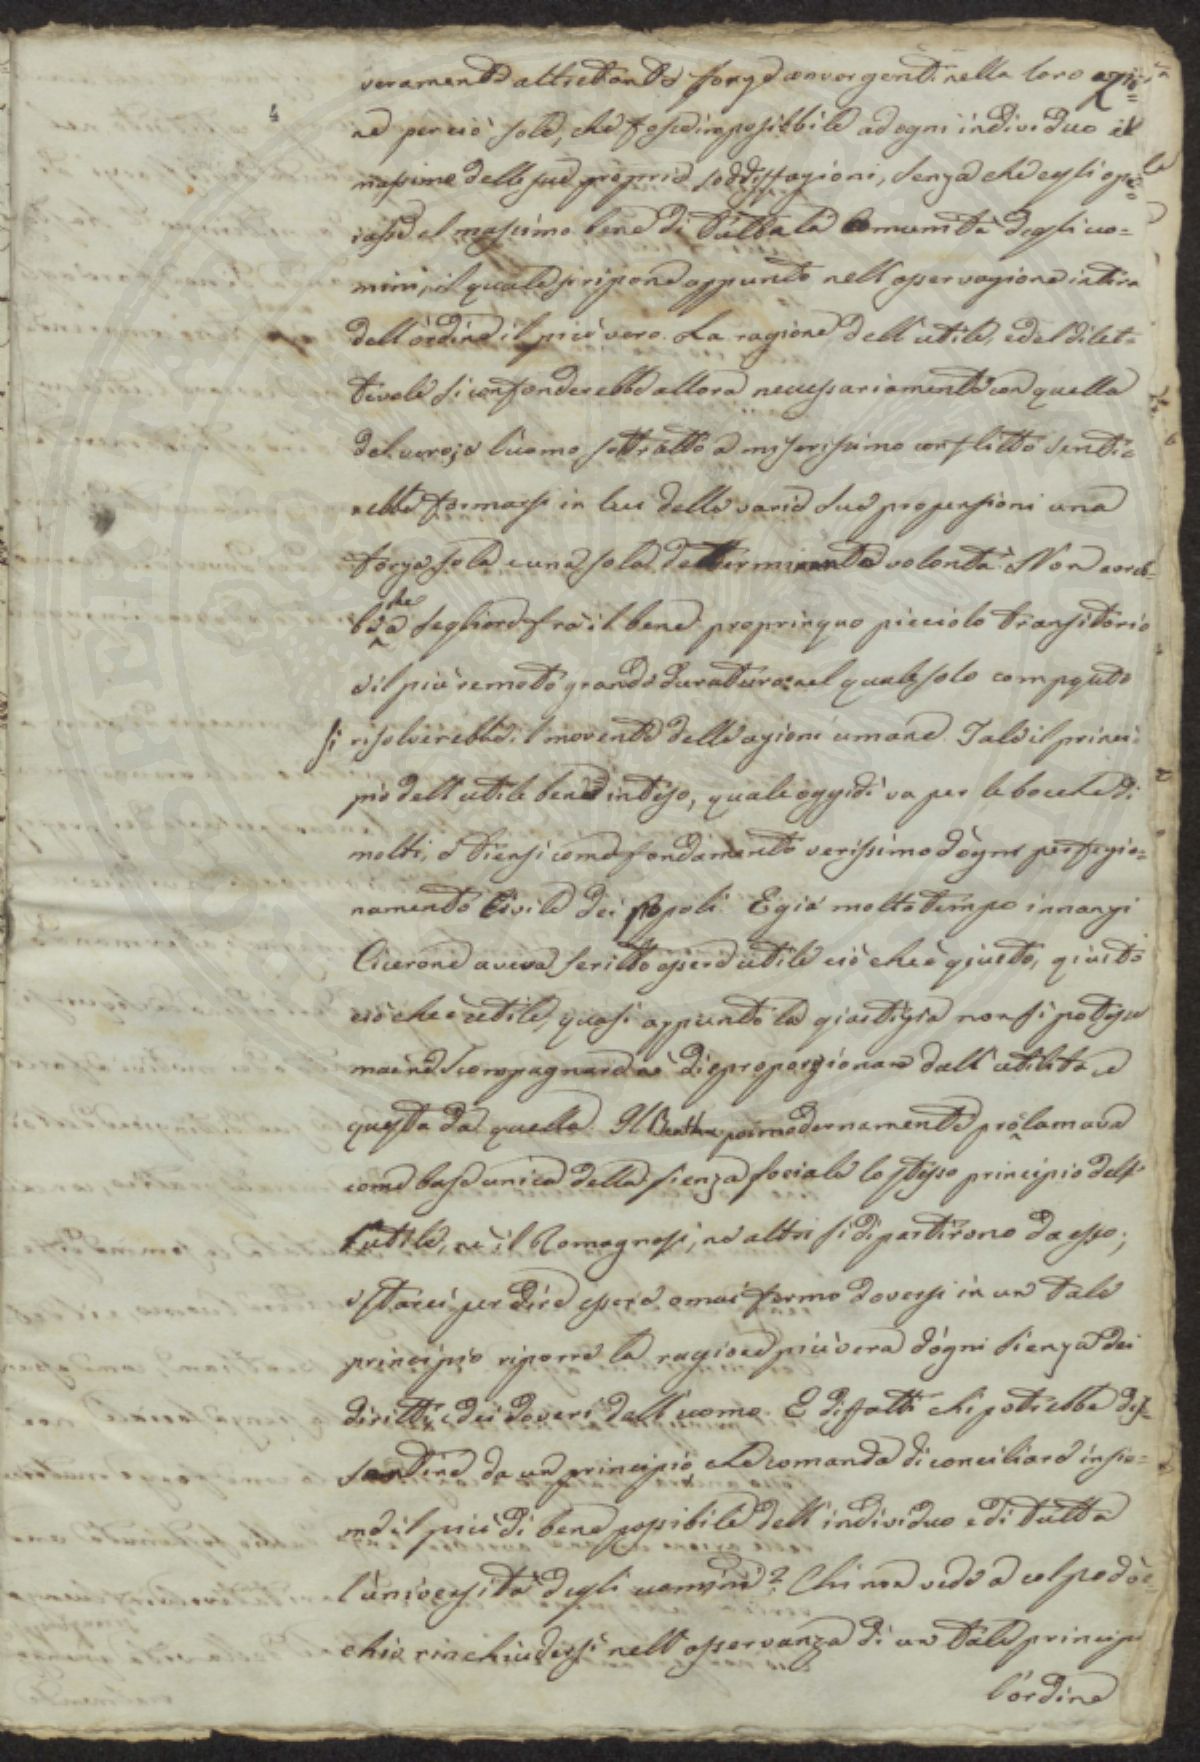 veramente altretante forze convergenti nella loro azio=
4
ne perciò solo, che fosse impossibbile ad ogni individuo il
massimo delle sue proprie soddisfazioni, senza che egli ope=
rasse al massimo bene di tutta la Comunità degli uo=
mini, il quale si ripone appunto nell'osservazione intera
dell'ordine il più vero. La ragione dell'utile, e del dilet=
tevole si confonderebbe allora necessariamente con quella
del vero; e l'uomo sottratto a miserissimo conflitto senti=
rebbe formarsi in lui delle varie sue propensioni una
forza sola e una sola determinante volontà. Non avreb=
be a che scegliere frà il bene proprinquo picciolo transitorio
e il più remoto grande duraturo: nel quale solo computo
si risolverebbe il movente delle azioni umane. Tale il princi=
pio dell'utile bene inteso, quale oggidì va per le bocche di
molti, e tiensi come fondamento verissimo d'ogni perfezio=
namento Civile dei popoli. E già molto tempo innanzi
Cicerone aveva scritto essere utile ciò che è giusto, giusto
ciò che è utile, quasi appunto la giustizia non si potesse
mai nè scompagnare nè disproporzionare dall'utilità, e
questa da quella. Il Bentham poi modernamente proclamava
come base unica della sienza sociale lo stesso principio dell'
utile, nè il Romagnosi, nè altri si dipartirono da esso;
e starei per dire essere omai fermo doversi in un tale
principio riporre la ragione più vera d'ogni sienza dei
diritti, e dei doveri dell'uomo. E diffatti chi potrebbe dis=
sentire da un principio che comanda di conciliare insie=
me il più di bene possibile dell'individuo e di tutta
l'università degli uomini? Chi non vede a colpo d'oc=
chio rinchiudersi nell'osservanza di un tale princip
l'ordine